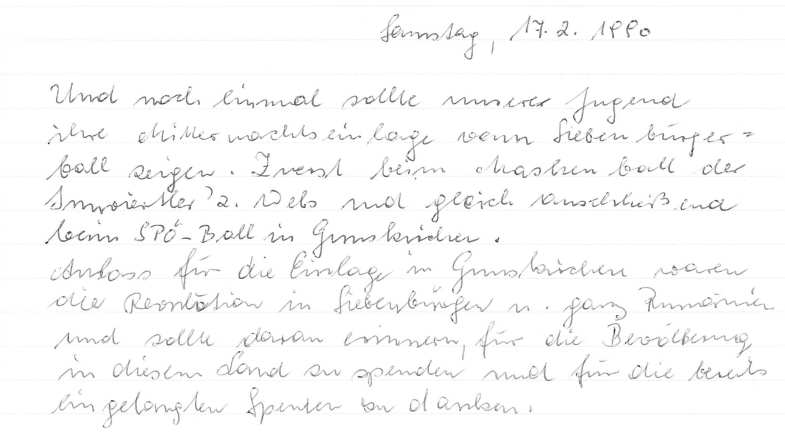 Samstag, 17. 2. 1990
Und noch einmal sollte unserer Jugend
ihre Mitternachtseinlage vom Siebenbürger=
ball zeigen. Zuerst beim Maskenball der
Innviertler z. Wels und gleich anschließend
beim SPÖ-Ball in Gunskirchen.
Anlass für die Einlage in Gunskirchen waren
die Revolution in Siebenbürgen u. ganz Rumänien
und sollte daran erinnern, für die Bevölkerung
in diesem Land zu spenden und für die bereits
eingelangten Spenden zu danken.